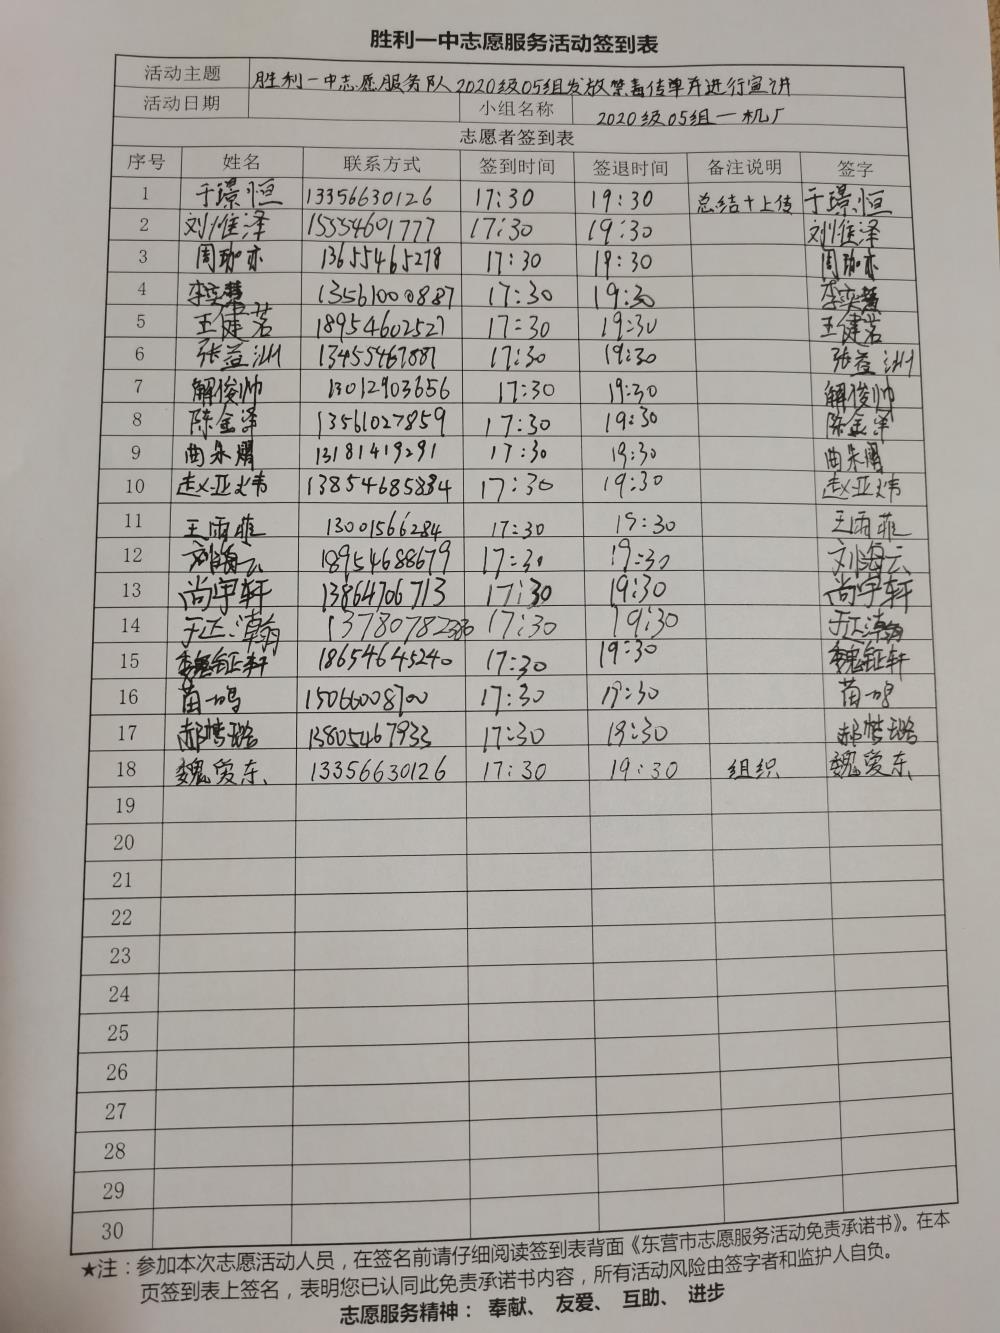 胜利一中志愿服务活动签到表
活动主题 胜利一中志愿服务队2020级05组发放禁毒传单并进行宣讲
活动日期 小组名称 2020级05组一机厂
志愿者签到表
序号 姓名 联系方式 签到时间 签退时间 备注说明 签字
1 于璟恒 13356630126 17:30 19:30 总结+上传 于璟恒
2 刘惟泽 15554601777 17:30 19:30 刘惟泽
3 周珈亦 13655465278 17:30 19:30 周珈亦
4 李奕慧 13561000887 17:30 19:30 李奕慧
5 王健茗 18954602527 17:30 19:30 王健茗
6 张益洲 13455467887 17:30 19:30 张益洲
7 解俊帅 13012903656 17:30 19:30 解俊帅
8 陈金泽 13561027859 17:30 19:30 陈金泽
9 曲朱熠 13181419291 17:30 19:30 曲朱熠
10 赵亚炜 13854685884 17:30 19:30 赵亚炜
11 王雨菲 13001566284 17:30 19:30 王雨菲
12 刘海云 18954688679 17:30 19:30 刘海云
13 尚宇轩 13864706713 17:30 19:30 尚宇轩
14 于正瀚 17:30 19:30 于正瀚
15 魏钲轩 18654645240 17:30 19:30 魏钲轩
16 苗一鸣 15066008700 17:30 19:30 苗一鸣
17 郝梦璐 13805467933 17:30 19:30 郝梦璐
18 魏爱东 13356630126 17:30 19:30 组织 魏爱东
19
20
21
22
23
24
25
26
27
28
29
30
★注：参加本次志愿活动人员，在签名前请仔细阅读签到表背面《东营市志愿服务活动免责承诺书》。在本
页签到表上签名，表明您已认同此免责承诺书内容，所有活动风险由签字者和监护人自负。
志愿服务精神： 奉献、 友爱、 互助、 进步